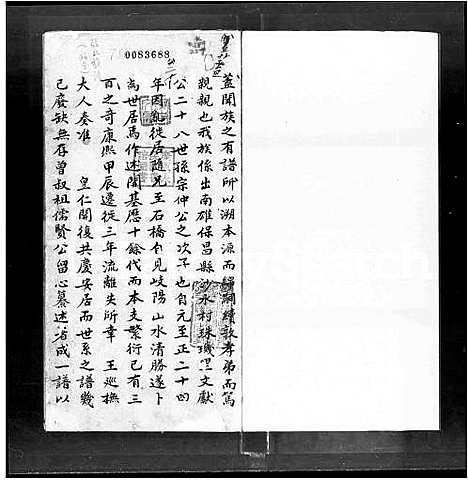 0083688
蓋聞族之有譜所以溯本源而綿嗣續敦孝弟而篤
親親也我族係出南雄保昌縣沙水村珠璣里文獻
公二十八世孫宗仲公之次子也自元至正二十四
年因亂徙居隨兄至石橋白見岐陽山水清勝遂卜
為世居焉作述開基歷十餘代而本支繁衍已有三
百之奇康熙甲辰遷徙三年流離失所幸 王巡撫
大人奏准 皇仁開復共慶安居而世系之譜幾
已廢缺無存曾叔祖儒賢公留心纂述者成一譜以